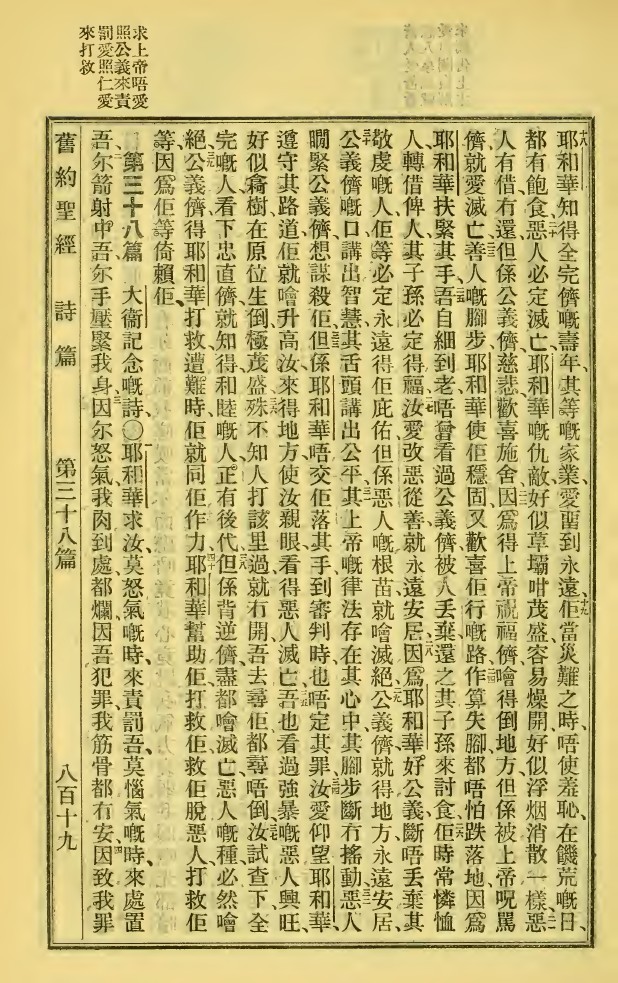 求上帝唔愛
照公義來責
罰愛照仁愛
來打救
十八耶和華知得全完儕嘅壽年、其等嘅家業、愛畱到永遠、十九佢當災難之時、唔使羞恥、在饑荒嘅日、
都有飽食、二十惡人必定滅亡、耶和華嘅仇敵、好似草壩咁茂盛、容易燥開、好似浮烟消散一樣、惡
人有借有還、但係公義儕慈悲、歡喜施舍、因爲得上帝祝福儕、噲得倒地方、但係被上帝呪罵
儕、就愛滅亡、善人嘅腳步、耶和華使佢穩固、又歡喜佢行嘅路、作算失腳、都唔怕跌落地、因爲
耶和華扶緊其手、吾自細到老、唔曾看過公義儕被人丟棄、還之其子孫來討食、佢時常憐恤
人、轉借俾人、其子孫必定得福、汝愛改惡從善、就永遠安居、因爲耶和華好公義、斷唔丟棄其
敬虔嘅人、佢等必定永遠得佢庇佑、但係惡人嘅根苗、就噲滅絕、公義儕就得地方、永遠安居、
公義儕嘅口講出智慧、其舌頭講出公平、其上帝嘅律法存在其心中、其腳步斷冇搖動、惡人
瞯緊公義儕、想謀殺佢、但係耶和華唔交佢落其手、到審判時也唔定其罪、汝愛仰望耶和華、
遵守其路道、佢就噲升高汝、來得地方、使汝親眼看得惡人滅亡、吾也看過強暴嘅惡人興旺、
好似樹在原位生倒極茂盛、殊不知人打該里過、就冇開、吾去尋佢、都尋唔倒、汝試查下全
完嘅人、看下忠直儕、就知得和睦嘅人、正有後代、但係背逆儕、盡都噲滅亡、惡人嘅種、必然噲
絕、公義儕得耶和華打救、遭難時佢就同佢作力、耶和華幫助佢、打救佢、救佢脫惡人、打救佢
等、因爲佢等倚賴佢、
第三十八篇 大衞記念嘅詩、〇耶和華求汝莫怒氣嘅時、來責罰吾、莫惱氣嘅時、來處置
吾、尔箭射中吾、尔手壓緊我身、因尔怒氣、我肉到處都爛、因吾犯罪、我筋骨都冇安、因致我罪
舊約聖經 詩篇 第三十八篇 八百十九